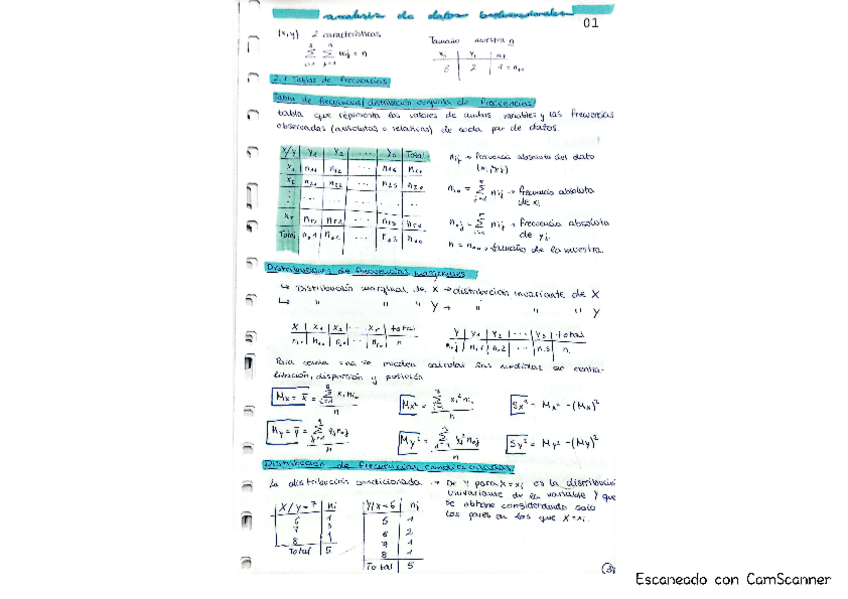 análisis de datos bidimensionales
01
(x,y) 2 características
Tamaño muestra n
2.1 Tablas de frecuencias
Tabla de frecuencias/distribución conjunta de frecuencias
tabla que representa los valores de ambas variables y las frecuencias
observadas (absolutas o relativas) de cada par de datos.
X/Y y1 y2 ... ys Total
x1 n11 n12 ... n1s n1•
x2 n21 n22 ... n2s n2•
xr nr1 nr2 ... nrs nr•
Total n•1 n•2 ... n•s n••
nij → frecuencia absoluta del dato
(xi, yj)
ni• = Σ nij → frecuencia absoluta
de xi
n•j = Σ nij → frecuencia absoluta
de yj.
n = n•• , tamaño de la muestra.
Distribuciones de frecuencias marginales
↳ Distribución marginal de X → distribución invariante de X
↳ " " " Y → " " " Y
X x1 x2 ... xr total
ni• n1• n2• ... nr• n
Y y1 y2 ... ys total
n•j n•1 n•2 ... n•s n
Para cada una se pueden calcular sus medidas de centra-
lización, dispersión y posición
Mx = x̄ = Σ xi ni• / n
Mx² = Σ xi² ni• / n
Sx² = Mx² - (Mx)²
My = ȳ = Σ yj n•j / n
My² = Σ yj² n•j / n
Sy² = My² - (My)²
Distribución de frecuencias condicionadas
La distribución condicionada → De Y para X=xi es la distribución
univariante de la variable Y que
se obtiene considerando solo
los pares en los que X=xi.
X/Y=7 ni
Y/X=6 nj
6 1
5 1
7 3
6 2
8 1
7 1
Total 5
8 1
Total 5
Escaneado con CamScanner